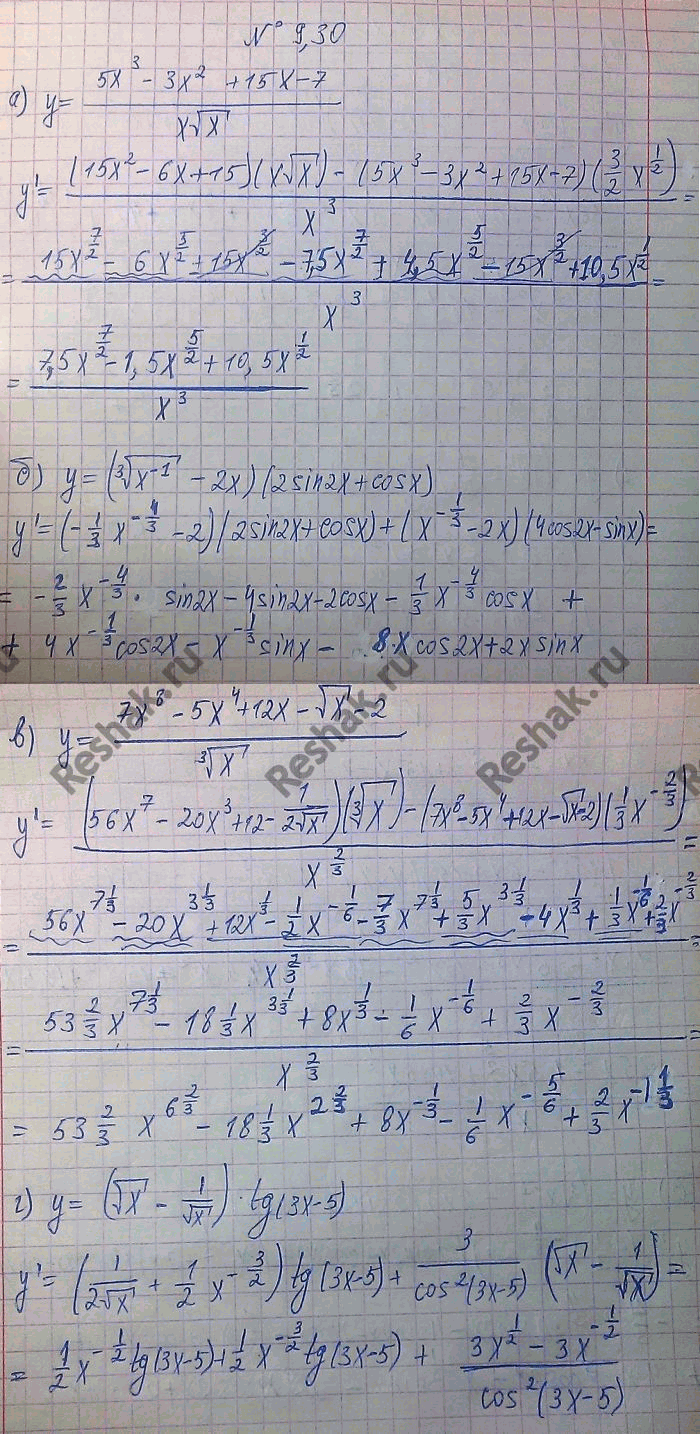 № 9,30
а) y = (5x³ - 3x² + 15x - 7)/(x√x)
y' = ((15x² - 6x + 15)(x√x) - (5x³ - 3x² + 15x - 7)(3/2 x^(1/2)))/x³ =
= (15x^(7/2) - 6x^(5/2) + 15x^(3/2) - 7,5x^(7/2) + 4,5x^(5/2) - 15x^(3/2) + 10,5x^(1/2))/x³ =
= (7,5x^(7/2) - 1,5x^(5/2) + 10,5x^(1/2))/x³
б) y = (∛(x^(-1)) - 2x)(2sin2x + cosx)
y' = (-1/3 x^(-4/3) - 2)(2sin2x + cosx) + (x^(-1/3) - 2x)(4cos2x - sinx) =
= -2/3 x^(-4/3) · sin2x - 4sin2x - 2cosx - 1/3 x^(-4/3) cosx +
+ 4x^(-1/3) cos2x - x^(-1/3) sinx - 8·x cos2x + 2x sinx
Reshak.ru
Reshak.ru
Reshak.ru
в) y = (7x⁸ - 5x⁴ + 12x - √x - 2)/∛x
y' = ((56x⁷ - 20x³ + 12 - 1/(2√x))(∛x) - (7x⁸ - 5x⁴ + 12x - √x - 2)(1/3 x^(-2/3)))/x^(2/3) =
= (56x^(7 1/3) - 20x^(3 1/3) + 12x^(1/3) - 1/2 x^(-1/6) - 7/3 x^(7 1/3) + 5/3 x^(3 1/3) - 4x^(1/3) + 1/3 x^(-1/6) + 2/3 x^(-2/3))/x^(2/3) =
= (53 2/3 x^(7 1/3) - 18 1/3 x^(3 1/3) + 8x^(1/3) - 1/6 x^(-1/6) + 2/3 x^(-2/3))/x^(2/3) =
= 53 2/3 x^(6 2/3) - 18 1/3 x^(2 2/3) + 8x^(-1/3) - 1/6 x^(-5/6) + 2/3 x^(-1 1/3)
г) y = (√x - 1/√x) · tg(3x-5)
y' = (1/(2√x) + 1/2 x^(-3/2)) tg(3x-5) + 3/cos²(3x-5) (√x - 1/√x) =
= 1/2 x^(-1/2) tg(3x-5) + 1/2 x^(-3/2) tg(3x-5) + (3x^(1/2) - 3x^(-1/2))/cos²(3x-5)